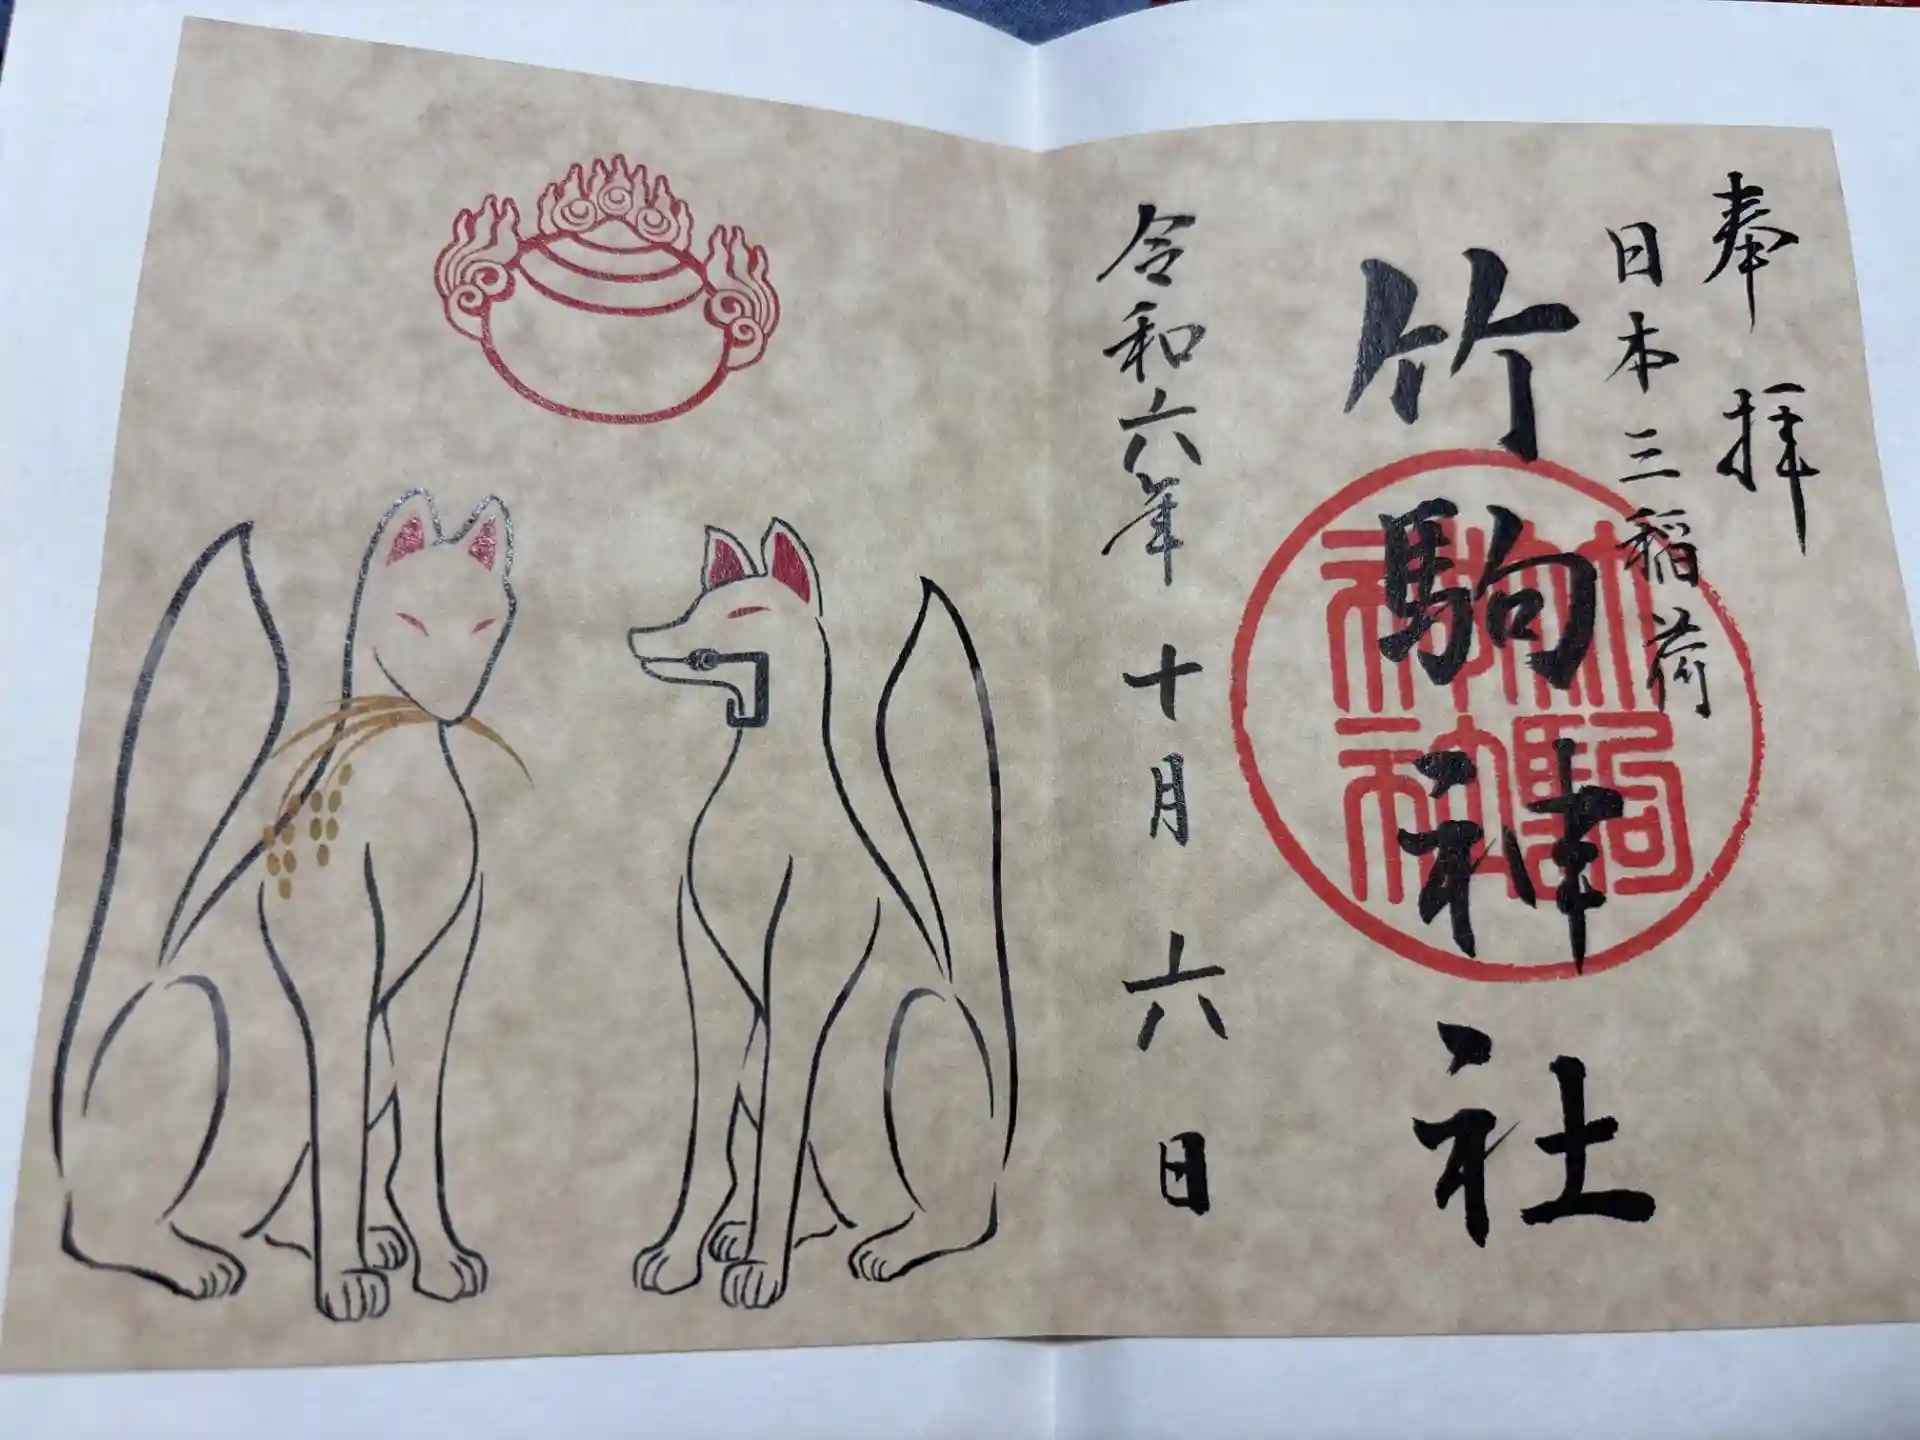 奉拝
日本三稲荷
竹駒神社
竹駒
神社
令和六年十月六日